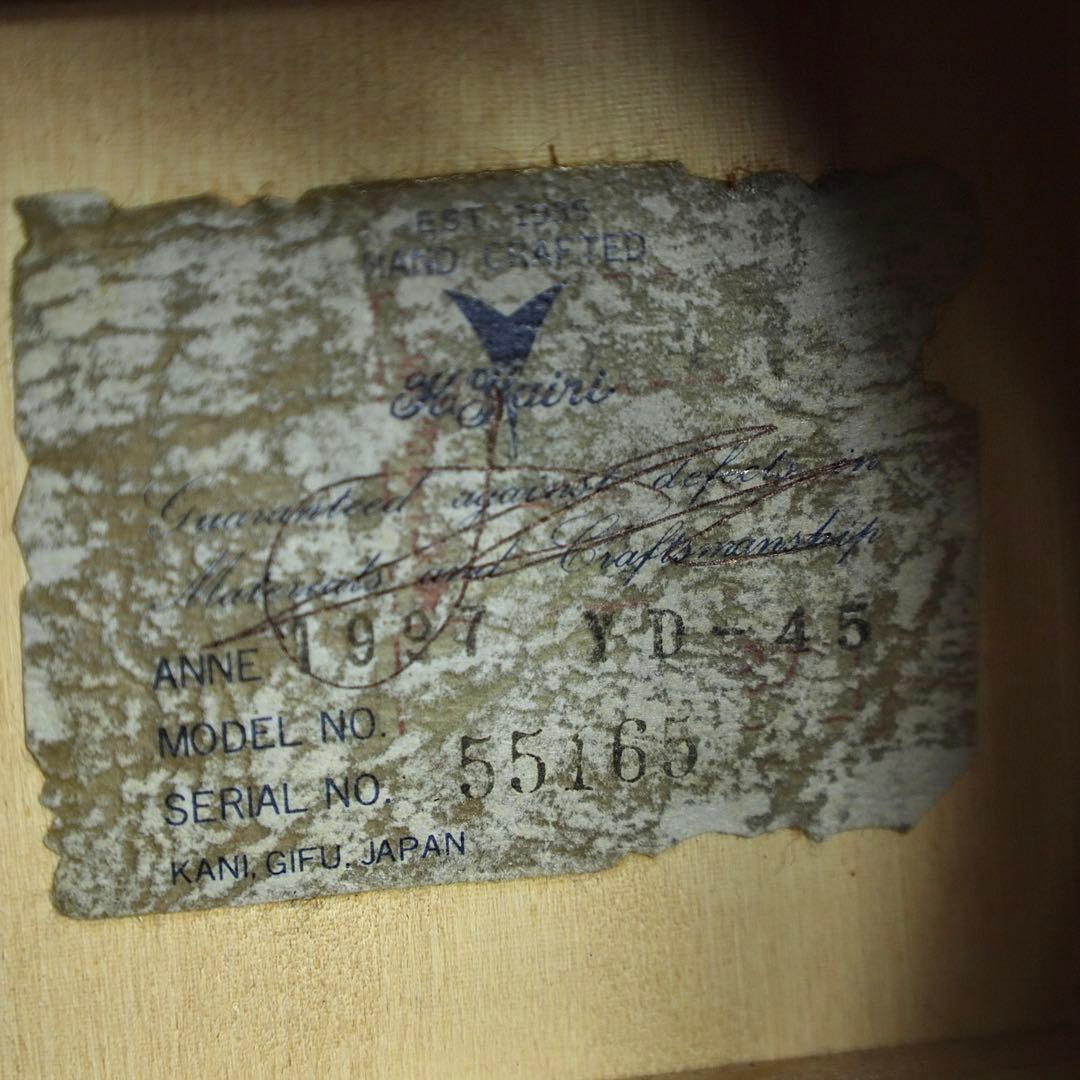 EST. 1935
HAND CRAFTED
K. Yairi
Guaranteed against defects in
Materials and Craftsmanship
ANNE 1997 YD-45
MODEL NO.
SERIAL NO. 55165
KANI, GIFU, JAPAN